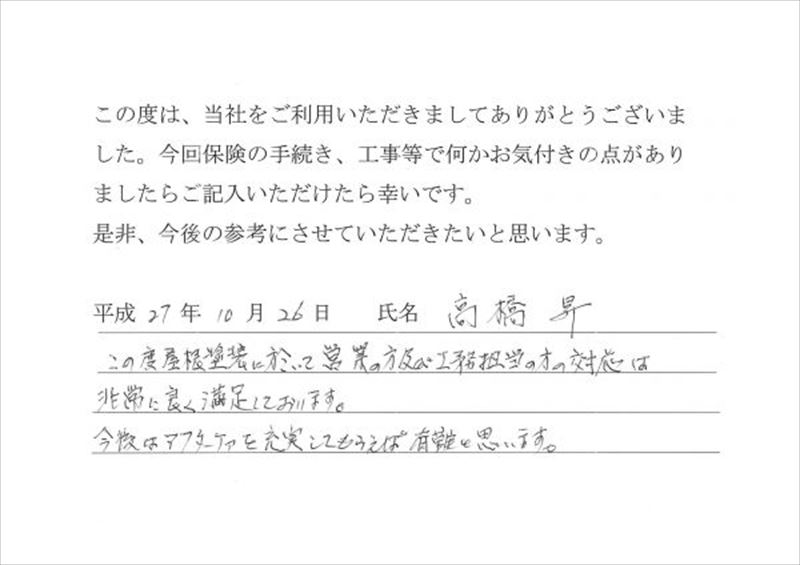 この度は、当社をご利用いただきましてありがとうございま
した。今回保険の手続き、工事等で何かお気付きの点があり
ましたらご記入いただけたら幸いです。
是非、今後の参考にさせていただきたいと思います。
平成 27 年 10 月 26 日 氏名 高橋 昇
この度屋根塗装に於いて営業の方及び工務担当の方の対応は
非常に良く満足しております。
今後はアフターケアを充実してもらえば有難いと思います。